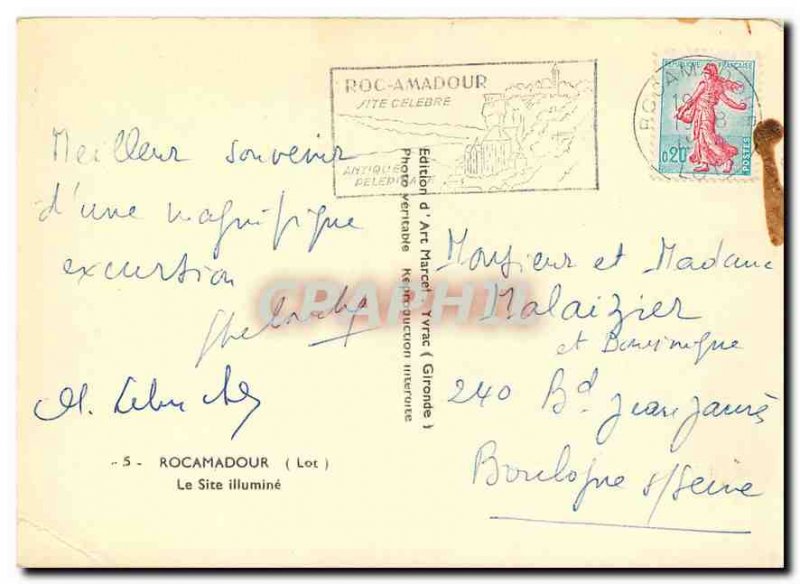 ROC-AMADOUR
SITE CELEBRE
ANTIQUE
PELERINAGE
REPUBLIQUE FRANÇAISE
0,20
POSTES
ROCAMADOUR
Meilleur souvenir
d'une magnifique
excursion
-5- ROCAMADOUR (Lot)
Le Site illuminé
Edition d'Art Marcel Yvrac (Gironde)
Photo véritable Reproduction interdite
CPAPHIL
Monsieur et Madame
Malaizier
et
240 Bd Jean Jaurès
Boulogne s/Seine